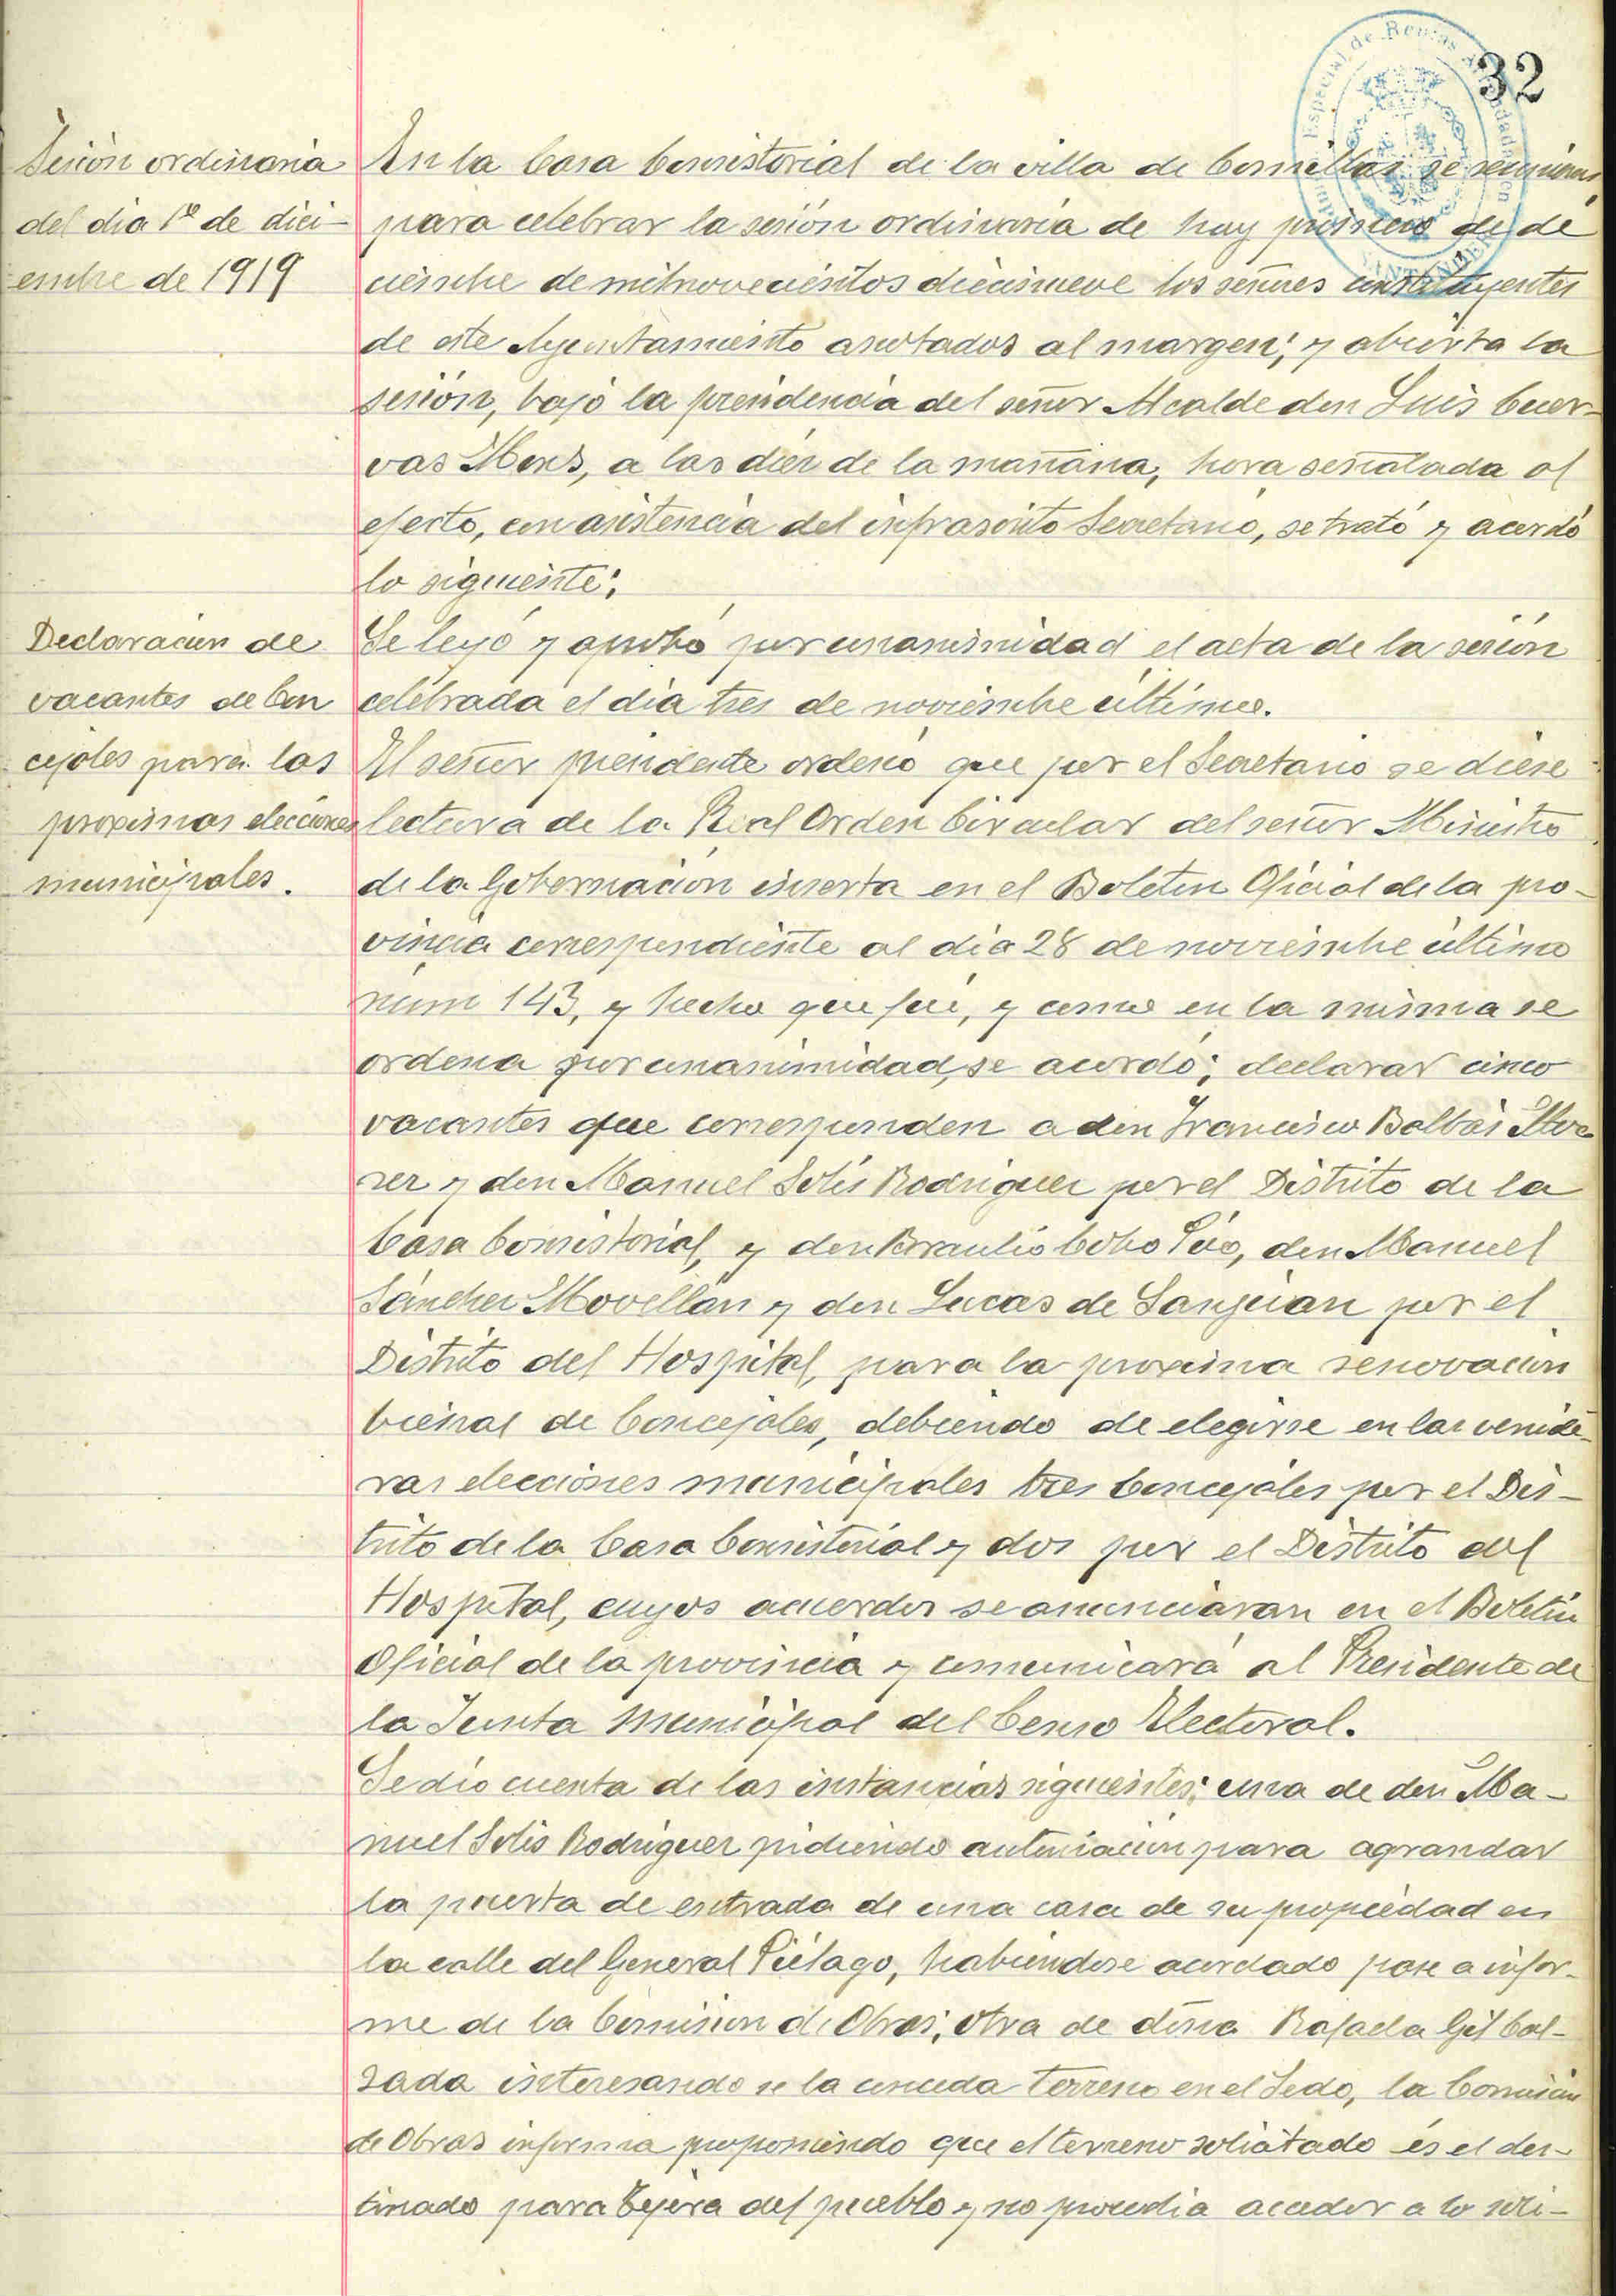 32
Sesión ordinaria
del dia 1º de dici-
embre de 1919
En la Casa Consistorial de la villa de Comillas se reunieron
para celebrar la sesión ordinaria de hoy primero de di
ciembre de mil novecientos diecinueve los señores constituyentes
de este Ayuntamiento anotados al margen; y abierta la
sesión, bajo la presidencia del señor Alcalde don Luis Cuer-
vas Mons, a las diez de la mañana, hora señalada al
efecto, con asistencia del infrascrito Secretario, se trató y acordó
lo siguiente:
Declaracion de
vacantes de Con
cejales para las
proximas elecciones
municipales.
Se leyó y aprobó por unanimidad el acta de la sesión
celebrada el dia tres de noviembre último.
El señor presidente ordenó que por el Secretario se diese
lectura de la Real Orden Circular del señor Ministro
de la Gobernación inserta en el Boletin Oficial de la pro-
vincia correspondiente al dia 28 de noviembre último
núm 143, y hecho que fué, y como en la misma se
ordena por unanimidad, se acordó; declarar cinco
vacantes que corresponden a don Francisco Balbás
y don Manuel Solís Rodriguez por el Distrito de la
Casa Consistorial, y don Braulio Cobo don Manuel
Sánchez Movellán y don Lucas de Sanjuan por el
Distrito del Hospital, para la proxima renovacion
bienal de Concejales, debiendo de elegirse en las venide-
ras elecciones municipales tres Concejales por el Dis-
trito de la Casa Consistorial y dos por el Distrito del
Hospital, cuyos acuerdos se anunciaran en el Boletin
Oficial de la provincia y comunicará al Presidente de
la Junta Municipal del Censo Electoral.
Se dio cuenta de las instancias siguientes; una de don Ma-
nuel Solis Rodriguez pidiendo autorizacion para agrandar
la puerta de entrada de una casa de su propiedad en
la calle del General Piélago, habiendose acordado pase a infor-
me de la Comision de Obras; otra de doña Rafaela Gil Cal-
zada interesando se la conceda terreno en el Sedo, la Comisión
de Obras informa proponiendo que el terreno solicitado es el des-
tinado para tejera del pueblo y no procedia acceder a lo soli-